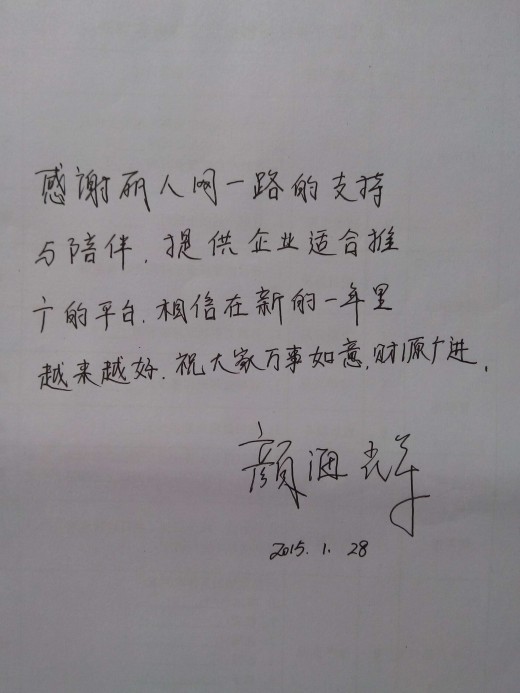 感谢丽人网一路的支持
与陪伴.提供企业适合推
广的平台.相信在新的一年里
越来越好.祝大家万事如意,财源广进,
颜涌辉
2015.1.28